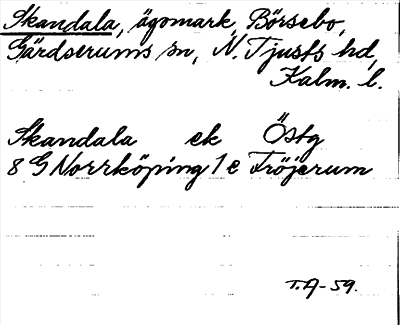 Skandala, ägomark, Börsebo,
Gärdserums sn, N. Tjusts hd,
Kalm. l.
Skandala ek Östg
8 G Norrköping 1 e Fröjerum
T.A-59.